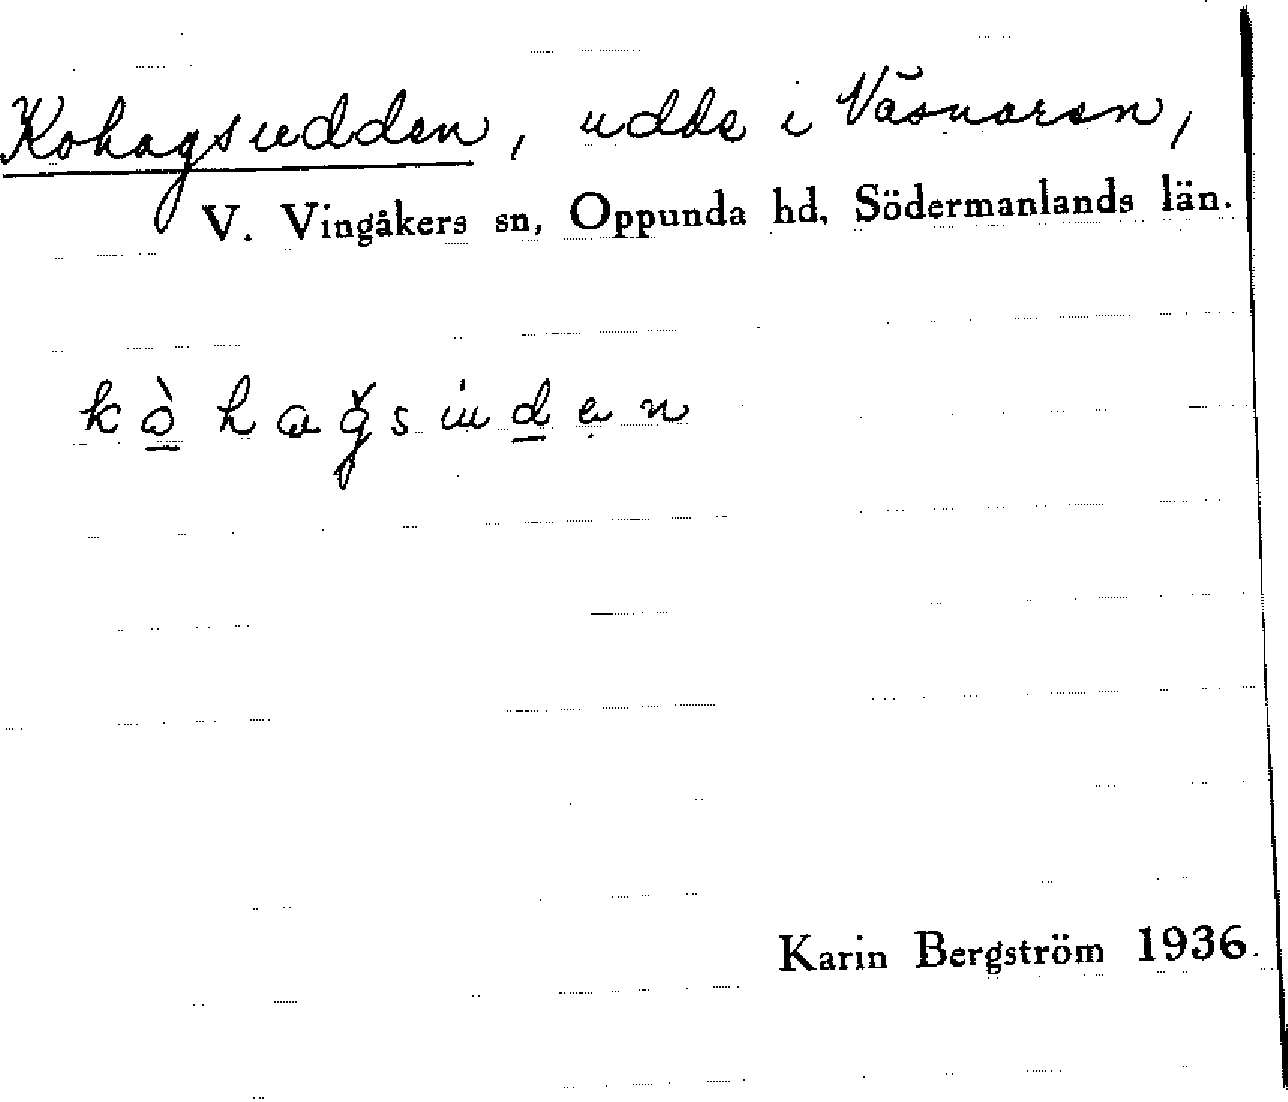 Kohagsudden, udde i Väsnaren,
V. Vingåkers sn, Oppunda hd, Södermanlands län.
kòhagsuden
Karin Bergström 1936.